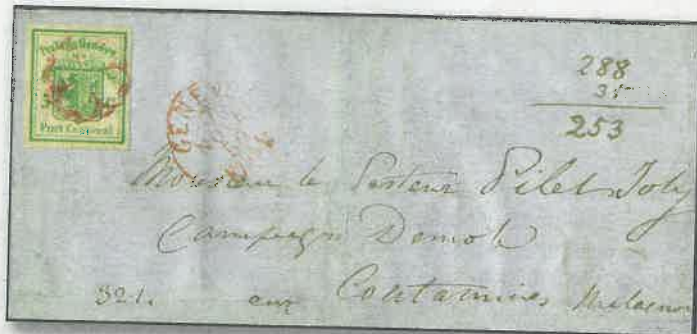 Poste de Genève
Port Cantonal
GENÈVE
288
35
253
Monsieur le Pasteur Pilet Joly
Campagne Demole
aux Contamines